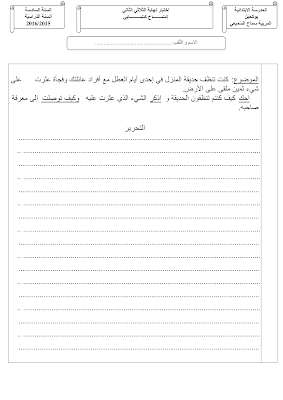 المدرسة الابتدائية
بوذخين
المربية سماح المنصيفي
اختبار نهاية الثلاثي الثاني
إنتـــــاج كتـــــابي
السنة السادسة
السنة الدراسية
2016/2015
الاسم و اللقب:
الموضوع: كنت تنظف حديقة المنزل في إحدى أيام العطل مع أفراد عائلتك وفجأة عثرت على
شيء ثمين ملقى على الأرض.
أحك كيف كنتم تنظفون الحديقة و إذكر الشيء الذي عثرت عليه وكيف توصلت إلى معرفة
صاحبه.
التحرير